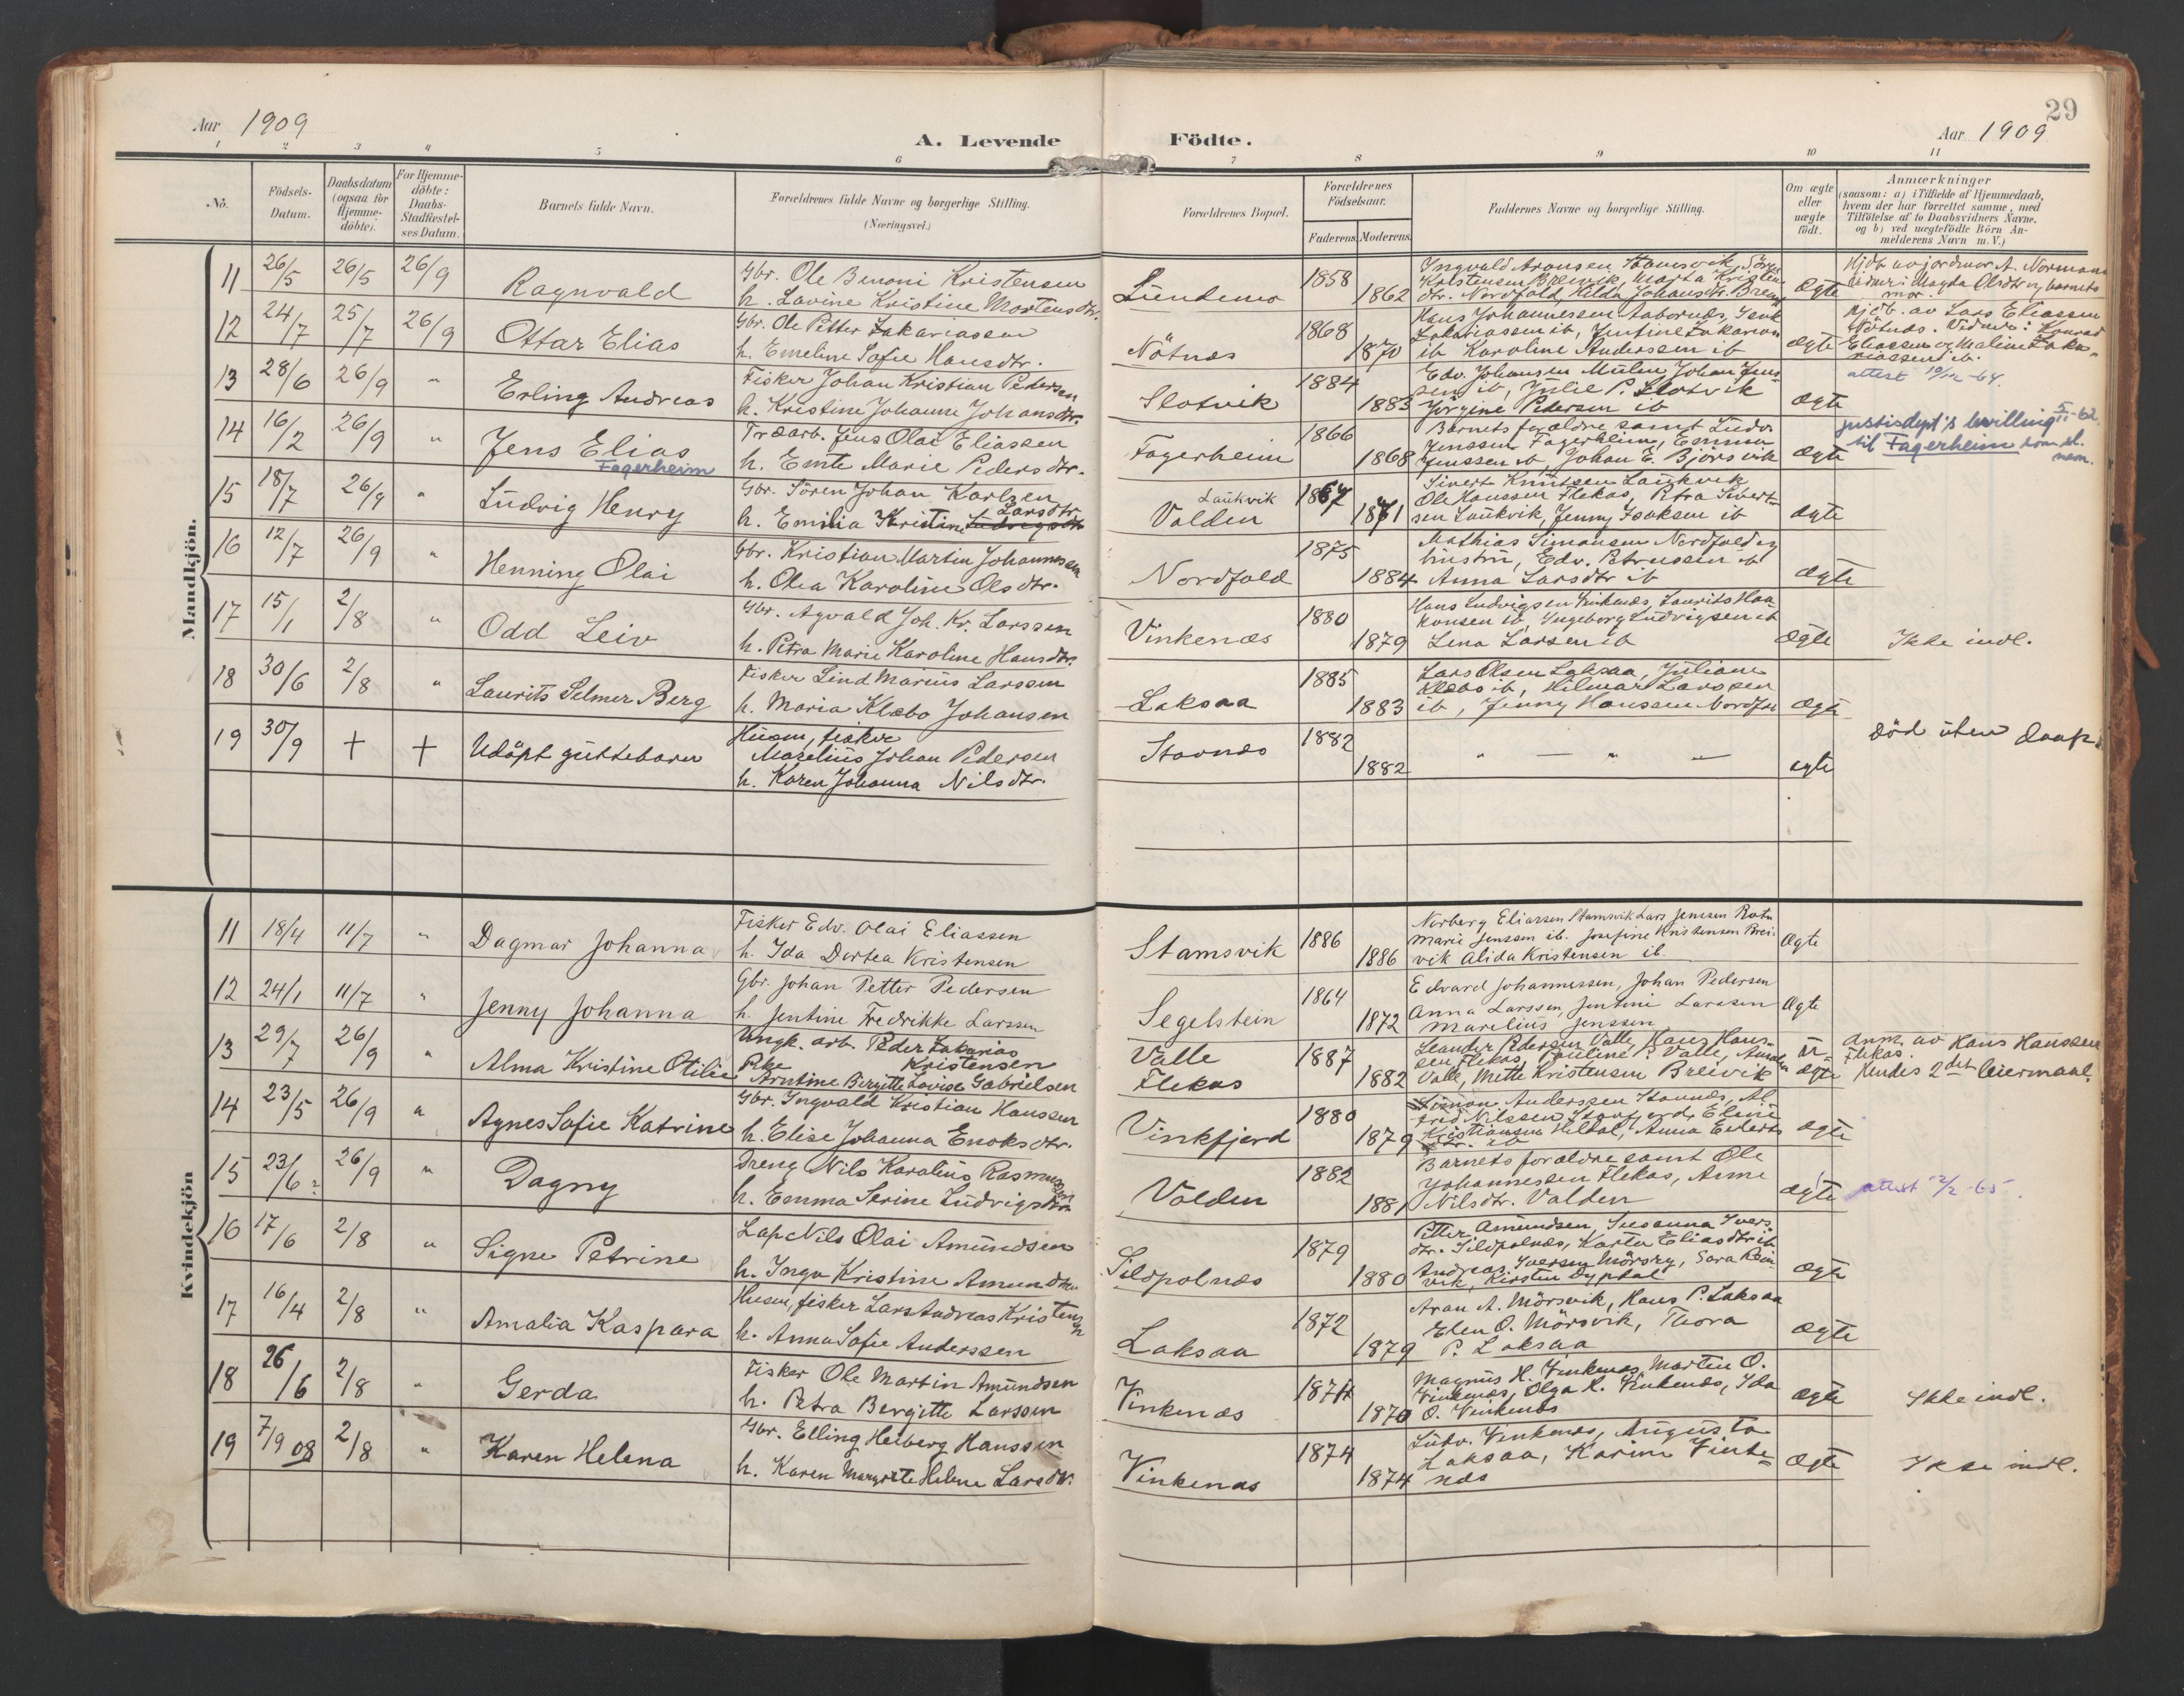 29
Aar 1909
A. Levende Födte.
Aar 1909
1 2 3 4 5 6 7 8 9 10 11
No.
Födsels-Datum.
Daabsdatum (ogsaa for Hjemme-döbte).
For Hjemme-döbte: Daabs-Stadfæstel-ses Datum.
Barnets fulde Navn.
Forældrenes fulde Navne og borgerlige Stilling.
(Næringsvei.)
Forældrenes Bopæl.
Forældrenes Födselsaar.
Faderens. Moderens.
Faddernes Navne og borgerlige Stilling.
Om ægte eller uægte födt.
Anmærkninger
(saasom: a) i Tilfælde af Hjemmedaab,
hvem der har forrettet samme, med
Tilföielse af to Daabsvidners Navne,
og b) ved uægtefödte Börn An-
melderens Navn m. V.)
Mandkjön.
11 26/5 26/5 26/9 Ragnvald
Gbr. Ole Benoni Kristensen
h. Lavine Kristine Mortensdtr.
Lundemo 1858 1862
Ingvald Aronsen Stamsvik,
Kristensen Breivik, Marta Kristine
dtr. Nordfold, Hilda Johansdtr.
Ægte
Hjdb. av jordmor A. Normann
Vidner: Magda Olsdtr og barnets
mor.
12 24/7 25/7 26/9 Ottar Elias
Gbr. Ole Petter Zakariassen
h. Emeline Sofie Hansdtr.
Nötnæs 1868 1870
Hans Johannesen
Zakariassen ib, Jentine Zakarias
ib Karoline Anderssen ib
ægte
Hjdb. av Lars Eliassen
Nötnæs. Vidner: Konrad
Eliassen og Maline Zaka-
riassen ib.
13 28/6 26/9 " Erling Andreas
Fisker Johan Kristian Pedersen
h. Kristine Johanne Johansdtr.
Slotvik 1884 1883
Edv. Johansen Mulen, Johan Jens-
sen ib, Julie P. Slotvik
Jörgine Pedersen ib
ægte
attest 19/12-64.
14 16/2 26/9 " Jens Elias
Fagerheim
Træarb. Jens Olai Eliassen
h. Emte Marie Pedersdtr.
Fagerheim 1866 1868
Barnets forældre samt Ludv.
Jenssen Fagerheim, Emma
Jenssen ib, Johan E. Björsvik
ægte
justisdept's bevilling 5/11-62
til Fagerheim som sl.
navn.
15 18/7 26/9 " Ludvig Henry
Gbr. Sören Johan Karlsen
Larsdtr.
h. Emilia Kristine Ludvigsdtr
Laukvik
Valden 1867 1871
Sivert Knutsen Laukvik
Ole Hanssen Flekas, Petra Sivert-
sen Laukvik, Jenny Isaksen ib
ægte
16 12/7 26/9 " Henning Olai
Gbr. Kristian Martin Johannessen
h. Olea Karoline Olsdtr.
Nordfold 1875 1884
Mathias Simonsen Nordfold og
hustru, Edv. Petrussen ib
Anna Larsdtr ib
ægte
17 15/1 2/8 " Odd Leiv
Gbr. Agvald Joh. Kr. Larssen
h. Petra Marie Karoline Hansdtr.
Vinkenæs 1880 1879
Hans Ludvigsen Vinkenæs, Laurits Haa-
konsen ib, Ingeborg Ludvigsen ib
Lena Larsen ib
ægte
Ikke indl.
18 30/6 2/8 " Laurits Selmer Berg
Fisker Lind Marius Larssen
h. Maria Klæbo Johansen
Laksaa 1885 1883
Lars Olsen Laksaa, Juliane
Klæbo ib, Hilmar Larssen
ib, Jenny Hanssen Nordfold
ægte
19 30/9 + + Udöpt guttebarn
Husm, fisker
Maselius Johan Pedersen
h. Karen Johanna Nilsdtr.
Stavnæs 1882 1882
" — " —
egte
död uten daap.
Kvindekjön
11 18/4 11/7 " Dagmar Johanna
Fisker Edv. Olai Eliassen
h. Ida Dortea Kristensen
Stamsvik 1886 1886
Norberg Eliassen Stamsvik Lars Jenssen
Marie Jenssen ib. Josefine Kristensen Brei-
vik Alida Kristensen ib.
Ægte
12 24/1 11/7 " Jenny Johanna
Gbr. Johan Petter Pedersen
h. Jentine Fredrikke Larssen
Segelstein 1864 1872
Edvard Johannessen, Johan Pedersen
Anna Larssen, Jentine Larssen
Marelius Jenssen
Ægte
13 29/7 26/9 " Alma Kristine Otilie
Ungk. arb. Peder Zakarias
Kristensen
Pike
Arntine Birgitte Lovise Gabrielsen
Valle
Flekas 1887 1882
Leander Pedersen Valle, Hans Hans-
sen Flekas, Pauline P. Valle, Amalie
Valle, Mette Kristensen Breivik
u-
ægte
Anm. av Hans Hanssen
Flekas.
Hendes 2det leiermaal.
14 23/5 26/9 " Agnes Sofie Katrine
Gbr. Ingvald Kristian Hanssen
h. Elise Johanna Enoksdtr.
Vinkfjord 1880 1879
Simon Anderssen Stavnæs, Al-
fred Nilssen Storfjord, Eline
Kristiansen Hildal, Anna Enoks
dtr. ib
ægte
15 23/6? 26/9 " Dagny
Dreng Nils Karolius Rasmussen
h. Emma Serine Ludvigsdtr
Valden 1882 1881
Barnets forældre samt Ole
Johannessen Flekas, Anne
Nilsdtr. Valden
ægte
attest 2/2-65.
16 17/6 2/8 " Signe Petrine
Lap Nils Olai Amundsen
h. Inga Kristine Amundsen
Sildpolnæs 1879 1880
Petter Amundsen, Susanna Ivers
dtr. Sildpolnæs, Karta Eliasdtr ib
Andreas Iversen Mörsry, Sara Rein
vik, Kirsten Dypdal
ægte
17 16/4 2/8 " Amalia Kaspara
Husm, fisker Lars Andreas Kristensen
h. Anna Sofie Anderssen
Laksaa 1872 1879
Aron A. Mörsvik, Hans P. Laksaa
Elen O. Mörsvik, Thora
P. Laksaa
ægte
18 26/6 2/8 " Gerda
Fisker Ole Martin Amundsen
h. Petra Bergitte Larssen
Vinkenæs 1874 1870
Magnus H. Vinkenæs, Martin O.
Vinkenæs, Olga H. Vinkenæs, Ida
O. Vinkenæs
ægte
Ikke indl.
19 7/9 08 2/8 " Karen Helena
Gbr. Elling Heiberg Hanssen
h. Karen Margrete Helene Larsdtr.
Vinkenæs 1874 1874
Ludv. Vinkenæs, Augusta
Laksaa, Karine Vinke-
næs
ægte
Ikke indl.